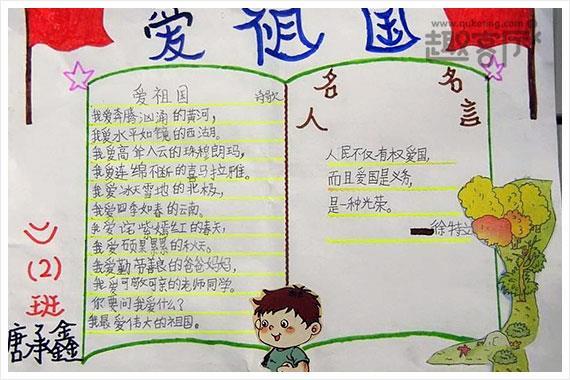 爱祖国
www.quketing.com
趣客网
爱祖国 诗歌
我爱奔腾汹涌的黄河,
我爱水平如镜的西湖。
我爱高耸入云的珠穆朗玛,
我爱连绵不断的喜马拉雅。
我爱冰天雪地的北极,
我爱四季如春的云南。
我爱姹紫嫣红的春天,
我爱硕果累累的秋天。
我爱勤劳善良的爸爸妈妈,
我爱可敬可亲的老师同学。
你要问我爱什么?
我最爱伟大的祖国。
名人
名言
人民不仅有权爱国,
而且爱国是义务,
是一种光荣。
——徐特立
(2)
班
唐承鑫